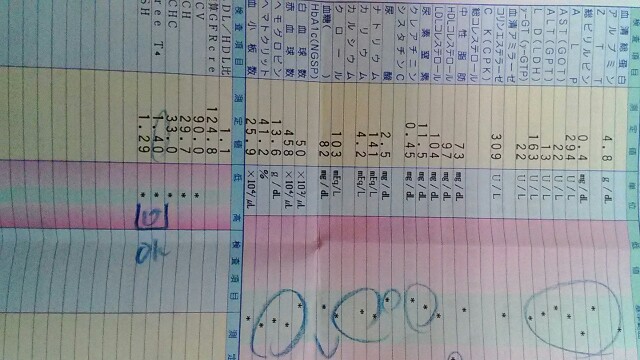 検査項目 測定値 単位 低
血清総蛋白
アルブミン 4.8 g/dL
Z T T
総ビルビリン 0.4 mg/dL
A L P 294 U/L
AST(GOT) 22 U/L
ALT(GPT) 13 U/L
L D(LDH) 163 U/L
γ-GT(γ-GTP) 22 U/L
コリンエステラーゼ
血清アミラーゼ 309 U/L
C K(CPK)
総コレステロール
中性脂肪 73 mg/dL
HDLコレステロール 97 mg/dL
LDLコレステロール 104 mg/dL
尿素窒素 11.5 mg/dL
クレアチニン 0.45 mg/dL
シスタチンC
尿酸 2.5 mg/dL
ナトリウム 141 mEq/L
カリウム 4.2 mEq/L
カルシウム
クロール 103 mEq/L
血糖( ) 82 mg/dL
HbA1c(NGSP)
白血球数 50 ×10²/μL
赤血球数 458 ×10⁴/μL
ヘモグロビン 13.6 g/dL
ヘマトクリット 41.2 %
血小板数 25.9 ×10⁴/μL
検査項目 測定値 低 高 検査項目 測定
DL/HDL比 1.1
算GFRcre 124.8
CV 90.0 *
CH 29.7 *
CHC 33.0 *
ree T⁴ 1.40 *
SH 1.29 *
OK